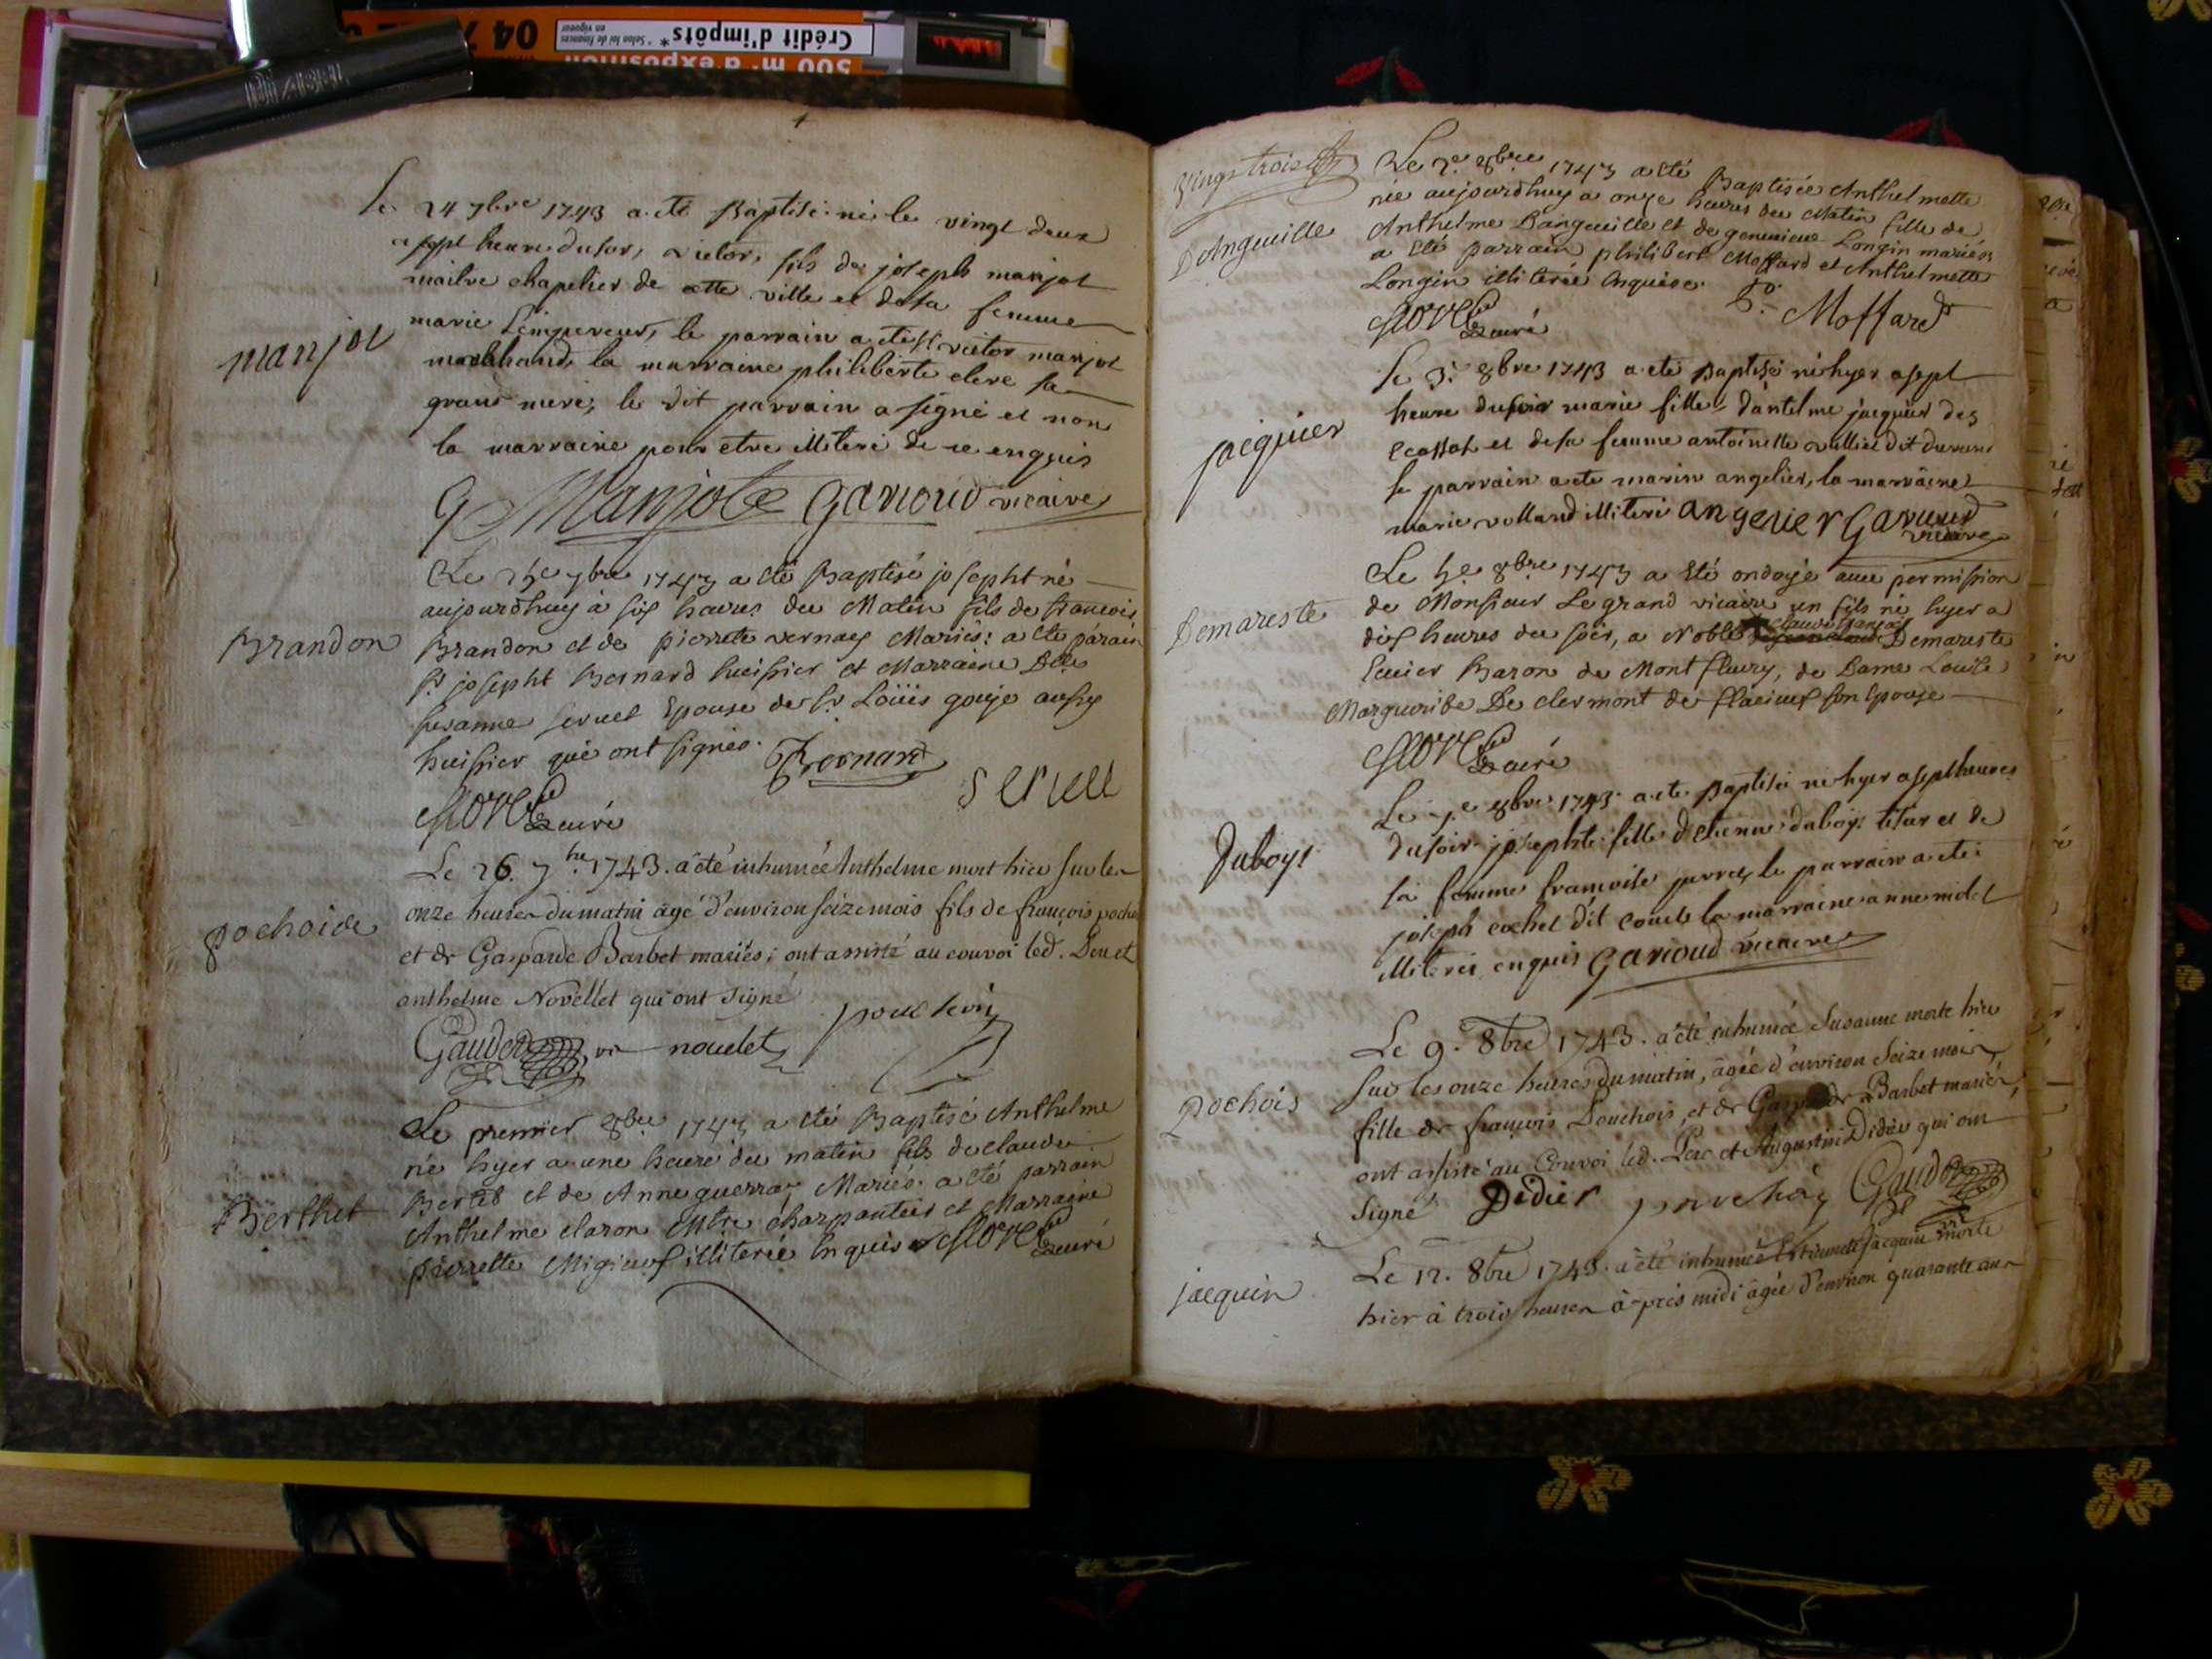 le 24 7bre 1743 a eté Baptisé né le vingt deux
a sept heure du soir, victor, fils de joseph manjot
maitre chapelier de cette ville et de sa femme
manjot
marie Lempereur, le parrain a eté sr victor manjot
marchand, la marraine philiberte clere sa
grand mere, le dit parrain a signé et non
la marraine pour etre illiteré de ce enquis
Manjote Garioud vicaire
7bre 1743 a eté Baptisé josepht né
aujourdhuy à six heures du Matin fils de francois
Brandon
Brandon et de pierrete vernay Mariés: a eté parain
Sr josepht Bernard huissier et Marraine Dlle
susanne servet Epouse de Sr Loüis gouje aussy
huissier qui ont signés.
Bernard
servet
curé
Le 26. 7bre 1743. a été inhumé Anthelme mort hier sur les
onze heures du matin âgé d'environ seize mois fils de françois
pochoide
et de Gasparde Barbet mariés; ont assisté au convoi led.
anthelme Novellet qui ont signé
nouelet
Le premier 8bre 1743 a eté Baptisé Anthelme
né hyer a une heure du matin fils de claude
Berthet
Bertet et de Anne guerra, Mariés. a eté parrain
Anthelme claron Mtre charpantier et Marraine
pierrette Migieux illiterée Enquis
curé
Vingt trois
Le 8bre 1743 a eté Baptisée Anthelmette
née aujourdhuy a onze heures du Matin fille de
D'Anguille
Anthelme Danguille et de genevieve Longin mariés
a eté parrain philibert Moffard et Anthelmette
Longin illiterée Enquise.
Moffard
curé
le 3e 8bre 1743 a eté Baptisé né hyer a sept
heure du soir marie fille d'antelme jacquier des
jacquier
ecassat et de sa femme antoinette vullier dit
le parrain a eté marin angelier, la marraine
marie volland illiteré angelier Garioud
vicaire
Le 8bre 1743 a eté ondoyé avec permission
Demareste
de Monsieur Le grand vicaire un fils né hyer a
dix heures du soir, a Noble claude françois Demareste
Ecuier Baron de Montfleury, de Dame Louise
Marguerite De clermont de flacieux son Epouse
curé
Le 8bre 1743 a eté Baptisé né hyer a sept heures
Duboys
du soir josephte fille d'etienne duboys et de
sa femme francoise le parrain a eté
joseph cochet dit la marraine anne
illiterés enquis Garioud vicaire
Le 9. 8bre 1743. a été inhumée Susanne morte hier
sur les onze heures du matin, âgée d'environ seize mois,
Pochois
fille de françois Pouchois, et de Gasparde Barbet mariés,
ont assisté au Convoi led. Pere et Augustin Didier qui ont
signé Didier
jacquin
Le 12. 8bre 1743. a été inhumée Etiennette jacquin morte
hier à trois heures après midi âgée d'environ quarante ans
Crédit d'impôts*
* Selon loi de finances
en vigueur
500 m² d'exposition